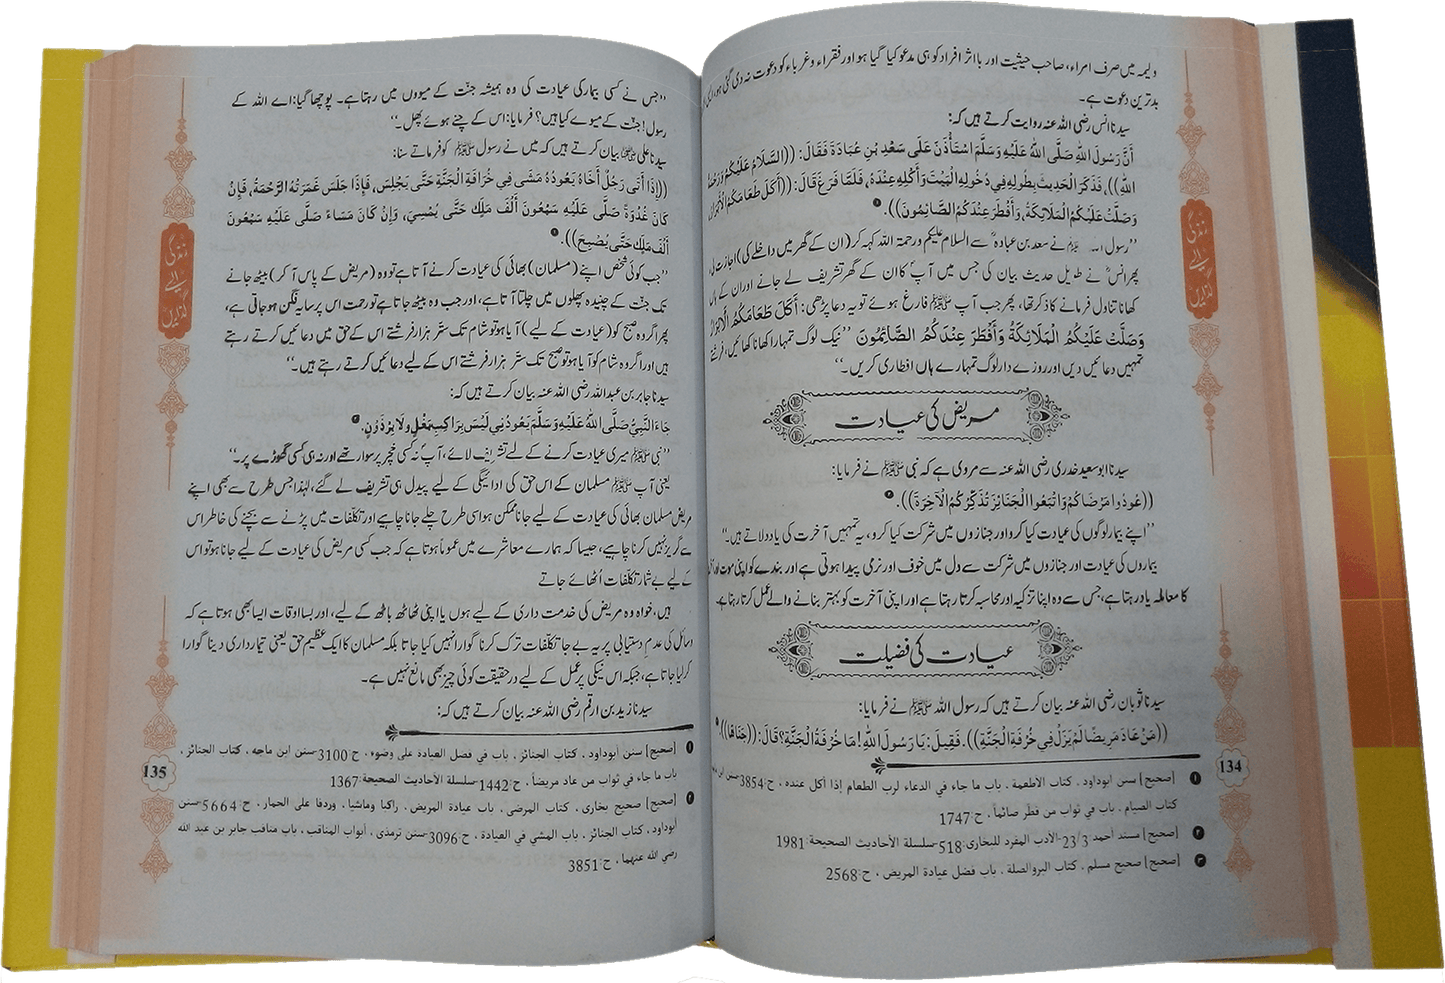 ولیمہ میں صرف امراء، صاحب حیثیت اور بااثر افراد کو ہی مدعو کیا گیا ہو اور فقراء و غرباء کو دعوت نہ دی گئی ہو،
بدترین دعوت ہے۔
سیدنا انس رضی اللہ عنہ روایت کرتے ہیں کہ:
أَنَّ رَسُولَ اللهِ صَلَّى اللهُ عَلَيْهِ وَسَلَّمَ اسْتَأْذَنَ عَلَى سَعْدِ بْنِ عُبَادَةَ فَقَالَ: ((السَّلَامُ عَلَيْكُمْ وَرَحْمَةُ
اللهِ))، فَذَكَرَ الْحَدِيثَ بِطُولِهِ فِي دُخُولِهِ الْبَيْتَ وَأَكْلِهِ عِنْدَهُ، فَلَمَّا فَرَغَ قَالَ: ((أَكَلَ طَعَامَكُمُ الْأَبْرَارُ،
وَصَلَّتْ عَلَيْكُمُ الْمَلَائِكَةُ، وَأَفْطَرَ عِنْدَكُمُ الصَّائِمُونَ)). ❶
’’رسول اللہ ﷺ نے سعد بن عبادہ ؓ سے السلام علیکم ورحمۃ اللہ کہہ کر (ان کے گھر میں داخلے کی) اجازت لی،
پھر انسؓ نے طویل حدیث بیان کی جس میں آپؐ کا ان کے گھر تشریف لے جانے اور ان کے ہاں
کھانا تناول فرمانے کا ذکر تھا، پھر جب آپ ﷺ فارغ ہوئے تو یہ دعا پڑھی: أَكَلَ طَعَامَكُمُ الْأَبْرَارُ
وَصَلَّتْ عَلَيْكُمُ الْمَلَائِكَةُ وَأَفْطَرَ عِنْدَكُمُ الصَّائِمُونَ ’’نیک لوگ تمہارا کھانا کھائیں، فرشتے
تمہیں دعائیں دیں اور روزے دار لوگ تمہارے ہاں افطاری کریں۔‘‘
مریض کی عیادت
سیدنا ابوسعید خدری رضی اللہ عنہ سے مروی ہے کہ نبی ﷺ نے فرمایا:
((عُودُوا مَرْضَاكُمْ وَاتَّبِعُوا الْجَنَائِزَ تُذَكِّرْكُمُ الْآخِرَةَ)). ❷
’’اپنے بیمار لوگوں کی عیادت کیا کرو اور جنازوں میں شرکت کیا کرو، یہ تمہیں آخرت کی یاد دلاتے ہیں۔‘‘
بیماروں کی عیادت اور جنازوں میں شرکت سے دل میں خوف اور نرمی پیدا ہوتی ہے اور بندے کو اپنی موت اور
کا معاملہ یاد رہتا ہے، جس سے وہ اپنا تزکیہ اور محاسبہ کرتا رہتا ہے اور اپنی آخرت کو بہتر بنانے والے عمل کرتا رہتا ہے۔
عیادت کی فضیلت
سیدنا ثوبان رضی اللہ عنہ بیان کرتے ہیں کہ رسول اللہ ﷺ نے فرمایا:
((مَنْ عَادَ مَرِيضًا لَمْ يَزَلْ فِي خُرْفَةِ الْجَنَّةِ)). فَقِيلَ: يَا رَسُولَ اللهِ! مَا خُرْفَةُ الْجَنَّةِ؟ قَالَ: ((جَنَاهَا)). ❸
❶ [صحيح] سنن ابوداود، کتاب الاطعمة، باب ما جاء في الدعاء لرب الطعام إذا أكل عنده، ح:3854-سنن ابن ماجه
كتاب الصيام، باب في ثواب من فطر صائماً، ح:1747
❷ [صحيح] مسند أحمد:23/3-الأدب المفرد للبخاري:518-سلسلة الأحاديث الصحيحة:1981
❸ [صحيح] صحيح مسلم، كتاب البر والصلة، باب فضل عيادة المريض، ح:2568
زندگی
ایسے
گذاریں
134
’’جس نے کسی بیمار کی عیادت کی وہ ہمیشہ جنّت کے میووں میں رہتا ہے۔ پوچھا گیا: اے اللہ کے
رسول! جنّت کے میوے کیا ہیں؟ فرمایا: اس کے چنے ہوئے پھل۔‘‘
سیدنا علی ؓ بیان کرتے ہیں کہ میں نے رسول ﷺ کو فرماتے سنا:
((إِذَا أَتَى رَجُلٌ أَخَاهُ يَعُودُهُ مَشَى فِي خُرَافَةِ الْجَنَّةِ حَتَّى يَجْلِسَ، فَإِذَا جَلَسَ غَمَرَتْهُ الرَّحْمَةُ، فَإِنْ
كَانَ غُدْوَةً صَلَّى عَلَيْهِ سَبْعُونَ أَلْفَ مَلَكٍ حَتَّى يُمْسِيَ، وَإِنْ كَانَ مَسَاءً صَلَّى عَلَيْهِ سَبْعُونَ
أَلْفَ مَلَكٍ حَتَّى يُصْبِحَ)). ❶
’’جب کوئی شخص اپنے (مسلمان) بھائی کی عیادت کرنے آتا ہے تو وہ (مریض کے پاس آ کر) بیٹھ جانے
تک جنّت کے چنیدہ پھلوں میں چلتا آتا ہے، اور جب وہ بیٹھ جاتا ہے تو رحمت اس پر سایہ فگن ہو جاتی ہے،
پھر اگر وہ صبح کو (عیادت کے لیے) آیا ہو تو شام تک ستّر ہزار فرشتے اس کے حق میں دعائیں کرتے رہتے
ہیں اور اگر وہ شام کو آیا ہو تو صبح تک ستّر ہزار فرشتے اس کے لیے دعائیں کرتے رہتے ہیں۔‘‘
سیدنا جابر بن عبداللہ رضی اللہ عنہ بیان کرتے ہیں کہ:
جَاءَ النَّبِيُّ صَلَّى اللهُ عَلَيْهِ وَسَلَّمَ يَعُودُنِي لَيْسَ بِرَاكِبِ بَغْلٍ وَلَا بِرْذَوْنٍ. ❷
’’نبی ﷺ میری عیادت کرنے کے لیے تشریف لائے، آپؐ نہ کسی خچّر پر سوار تھے اور نہ ہی کسی گھوڑے پر۔‘‘
یعنی آپ ﷺ مسلمان کے اس حق کی ادائیگی کے لیے پیدل ہی تشریف لے گئے، لہٰذا جس طرح سے بھی اپنے
مریض مسلمان بھائی کی عیادت کے لیے جانا ممکن ہو اسی طرح چلے جانا چاہیے اور تکلّفات میں پڑنے سے بچنے کی خاطر اس
سے گریز نہیں کرنا چاہیے، جیسا کہ ہمارے معاشرے میں عموماً ہوتا ہے کہ جب کسی مریض کی عیادت کے لیے جانا ہو تو اس
کے لیے بے شمار تکلّفات اُٹھائے جاتے
ہیں، خواہ وہ مریض کی خدمت داری کے لیے ہوں یا اپنی ٹھاٹھ باٹھ کے لیے، اور بسااوقات ایسا بھی ہوتا ہے کہ
وسائل کی عدم دستیابی پر یہ بے جا تکلّفات ترک کرنا گوارا نہیں کیا جاتا بلکہ مسلمان کا ایک عظیم حق یعنی تیمارداری دینا گوارا
کر لیا جاتا ہے، جبکہ اس نیکی پر عمل کے لیے درحقیقت کوئی چیز بھی مانع نہیں ہے۔
سیدنا زید بن ارقم رضی اللہ عنہ بیان کرتے ہیں کہ:
❶ [صحيح] سنن ابوداود، كتاب الجنائز، باب في فضل العيادة على وضوء، ح:3100-سنن ابن ماجه، كتاب الجنائز،
باب ما جاء في ثواب من عاد مريضاً، ح:1442-سلسلة الأحاديث الصحيحة:1367
❷ [صحيح] صحيح بخارى، كتاب المرضى، باب عيادة المريض، راكبا وماشيا، وردفا على الحمار، ح:5664-سنن
أبوداود، كتاب الجنائز، باب المشي في العيادة، ح:3096-سنن ترمذى، أبواب المناقب، باب مناقب جابر بن عبد الله
رضي الله عنهما، ح:3851
زندگی
ایسے
گذاریں
135